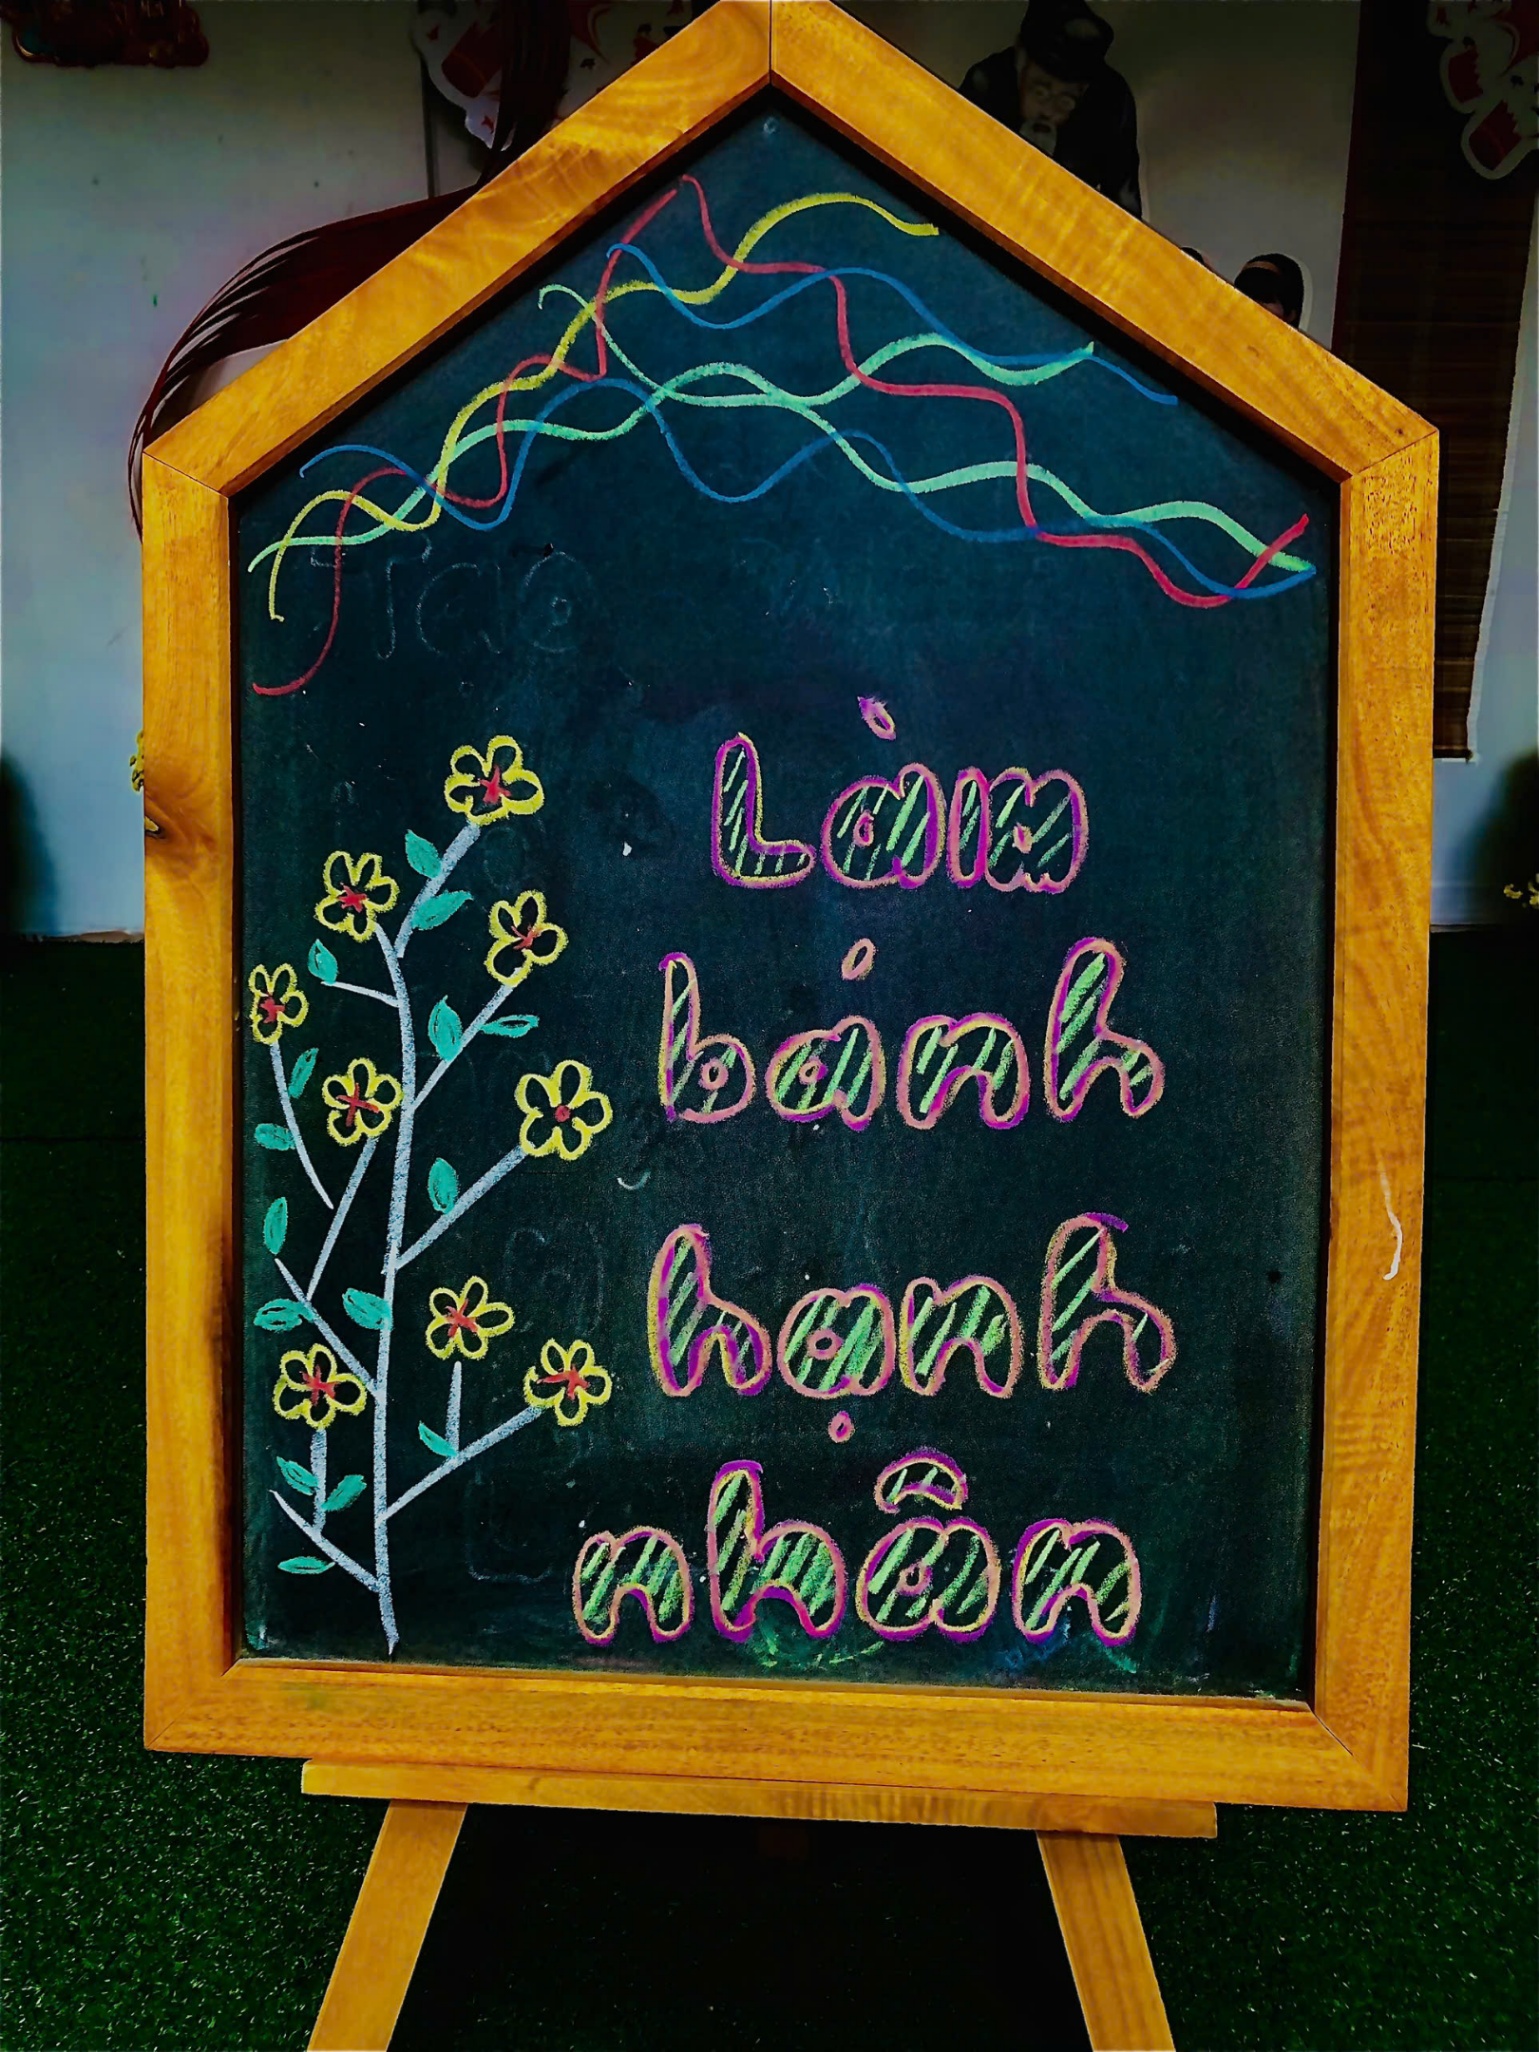 Làm
bánh
hạnh
nhân